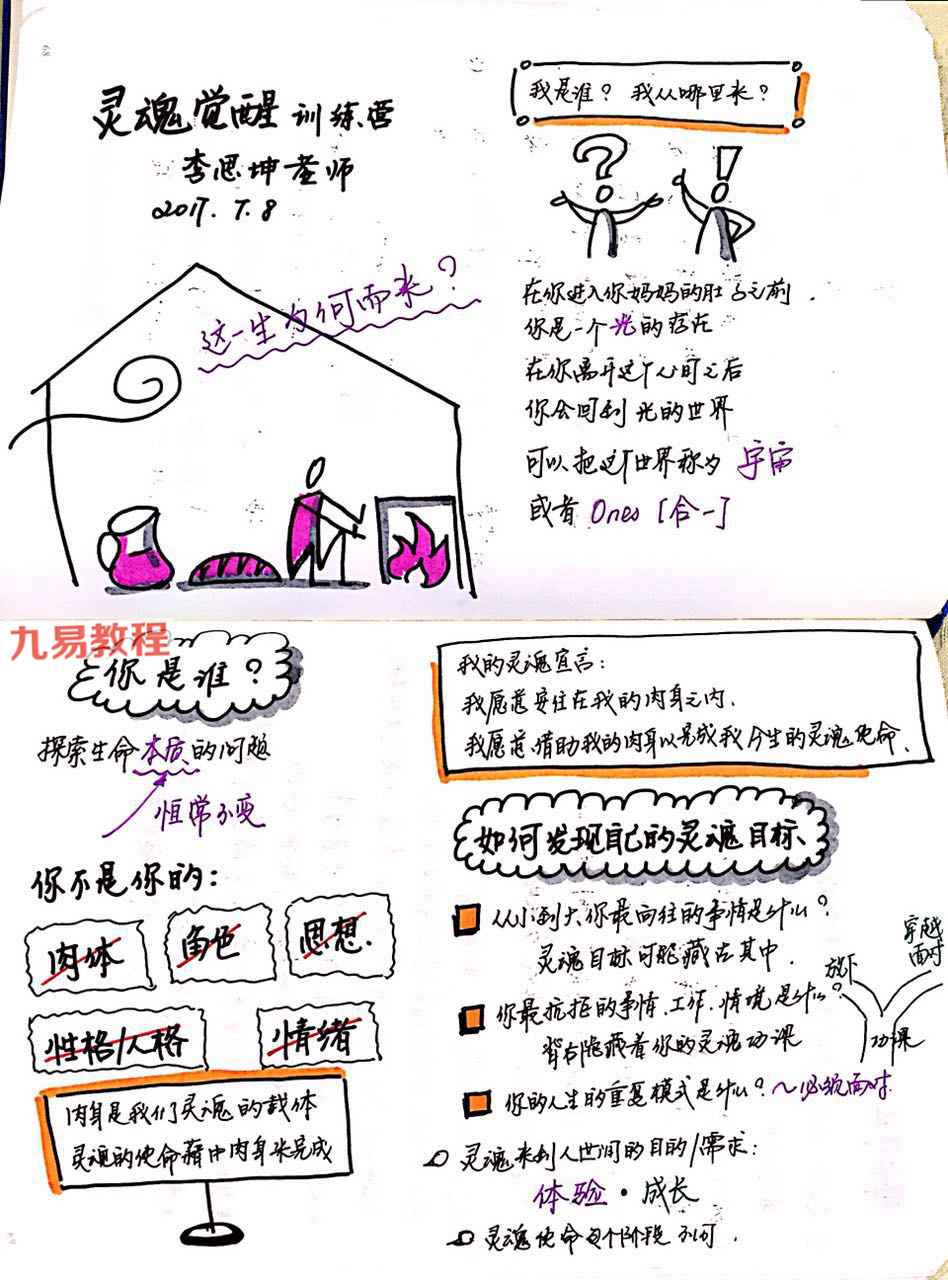 灵魂觉醒训练营
李思坤老师
2017.7.8
这一生为何而来？
我是谁？ 我从哪里来？
在你进入你妈妈的肚子之前，
你是一个光的存在
在你离开这个人间之后
你会回到光的世界
可以把这个世界称为 宇宙
或者 Ones [合一]
九易教程
你是谁？
探索生命本质的问题
恒常不变
你不是你的：
肉体
角色
思想.
性格/人格
情绪
肉身是我们灵魂的载体
灵魂的使命藉由肉身来完成
我的灵魂宣言：
我愿意安住在我的肉身之内.
我愿意借助我的肉身以完成我今生的灵魂使命.
如何发现自己的灵魂目标、
从小到大你最向往的事情是什么？
灵魂目标可能藏在其中.
你最抗拒的事情.工作.情境是什么？
背后隐藏着你的灵魂功课
放下
穿越
面对
功课
你的人生的重复模式是什么？～必须面对
灵魂来到人世间的目的/需求：
体验·成长
灵魂使命每个阶段不同.